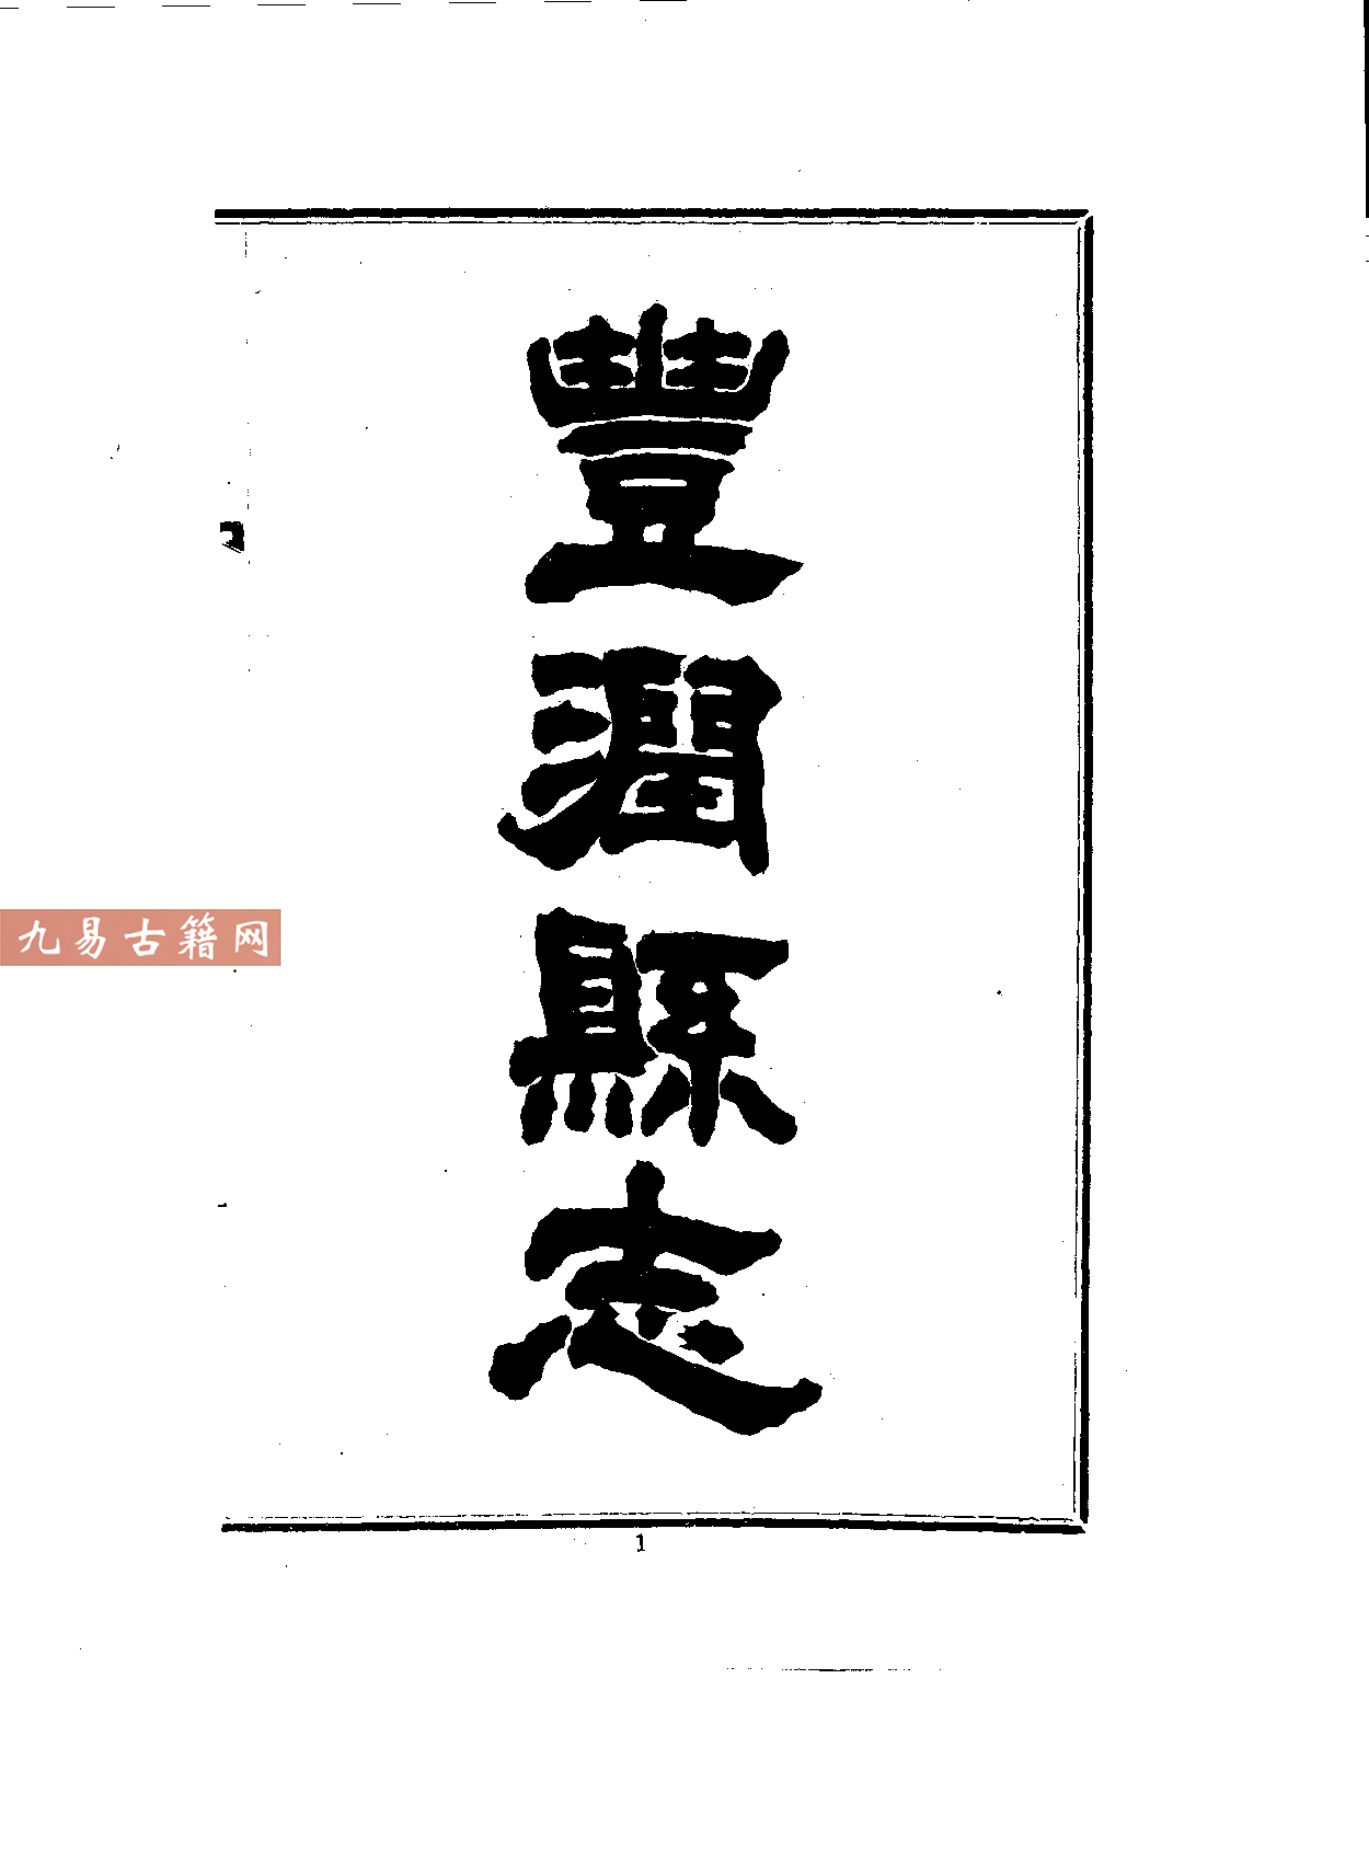 豐潤縣志
九易古籍网
1